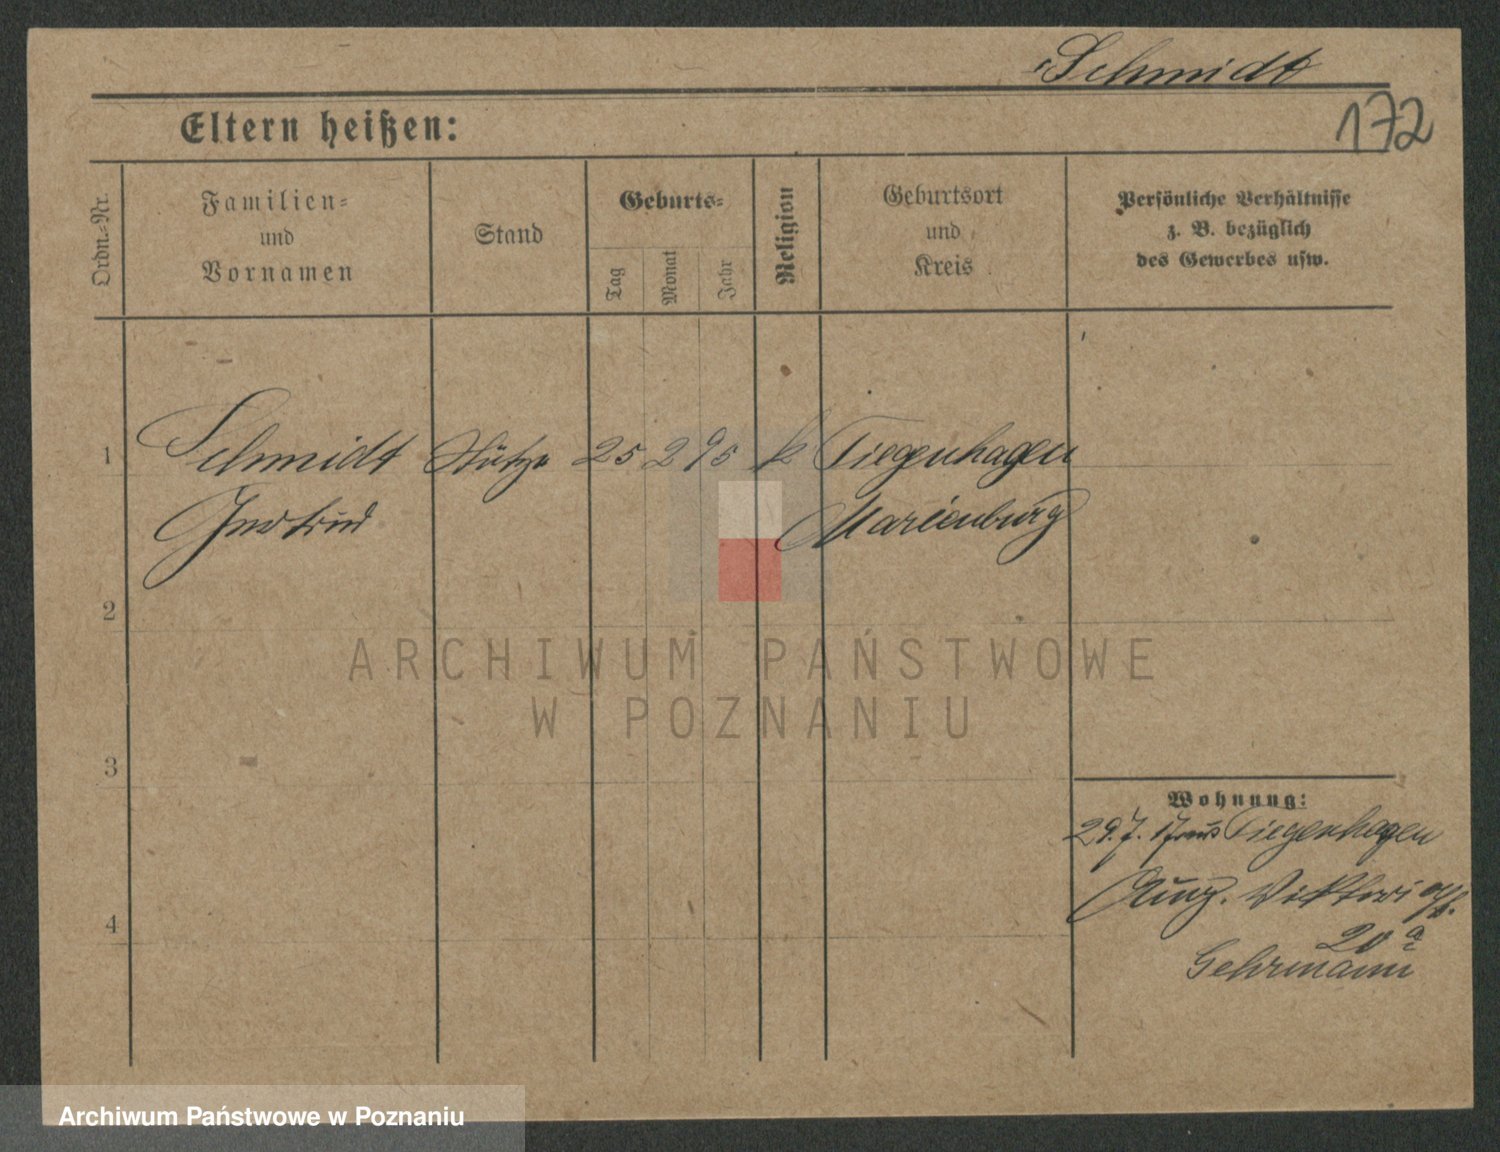 Schmidt
172
Eltern heißen:
Ordn.-Nr.
Familien-
und
Vornamen
Stand
Geburts-
Tag
Monat
Jahr
Religion
Geburtsort
und
Kreis
Persönliche Verhältnisse
z. B. bezüglich
des Gewerbes usw.
1 Schmidt Stütze 25 2 95 k Tiegenhagen
Gertrud Marienburg
2
ARCHIWUM PAŃSTWOWE
W POZNANIU
3
Wohnung:
29.7. 17 aus Tiegenhagen
Aug. Viktori
4
20a
Gehrmann
Archiwum Państwowe w Poznaniu